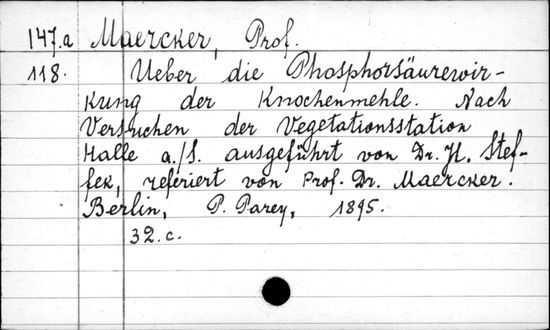 147.a Maercker, Prof.
118. Ueber die Phosphorsäurewir-
kung der Knochenmehle. Nach
Versuchen der Vegetationsstation
Halle a./S. ausgeführt von Dr. H. Stef-
fek, referiert von Prof. Dr. Maercker.
Berlin, P. Parey, 1895.
32.c.